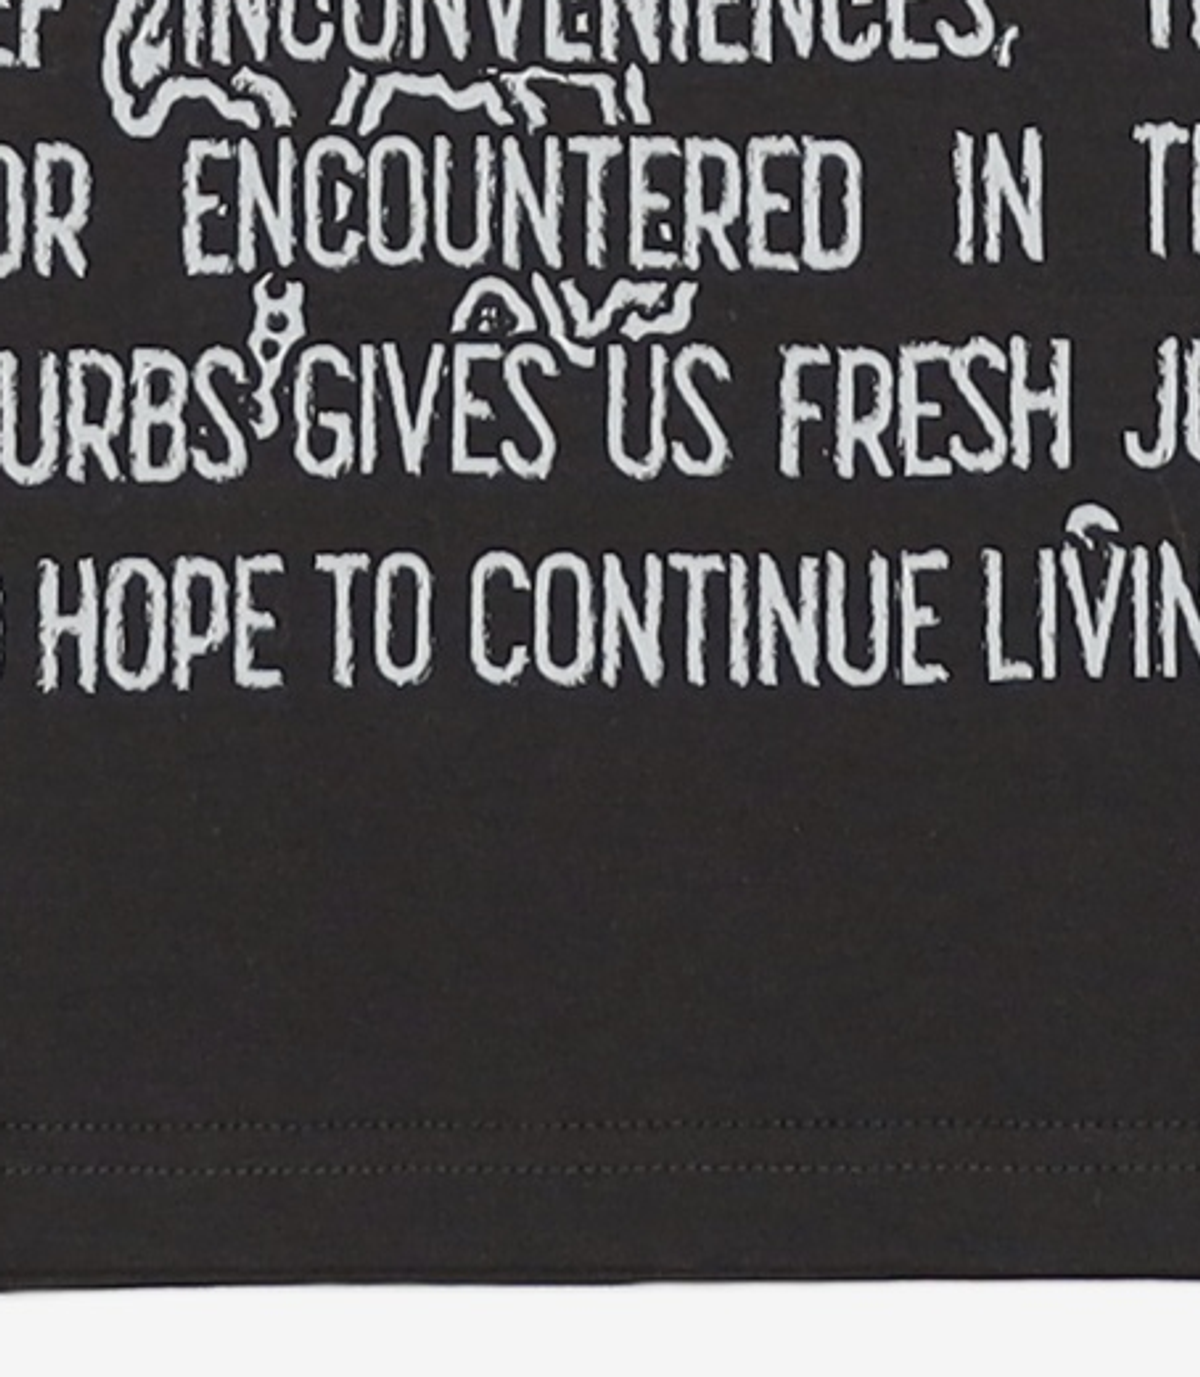 INCONVENIENCES,
OR ENCOUNTERED IN
URBS GIVES US FRESH
HOPE TO CONTINUE LIVIN